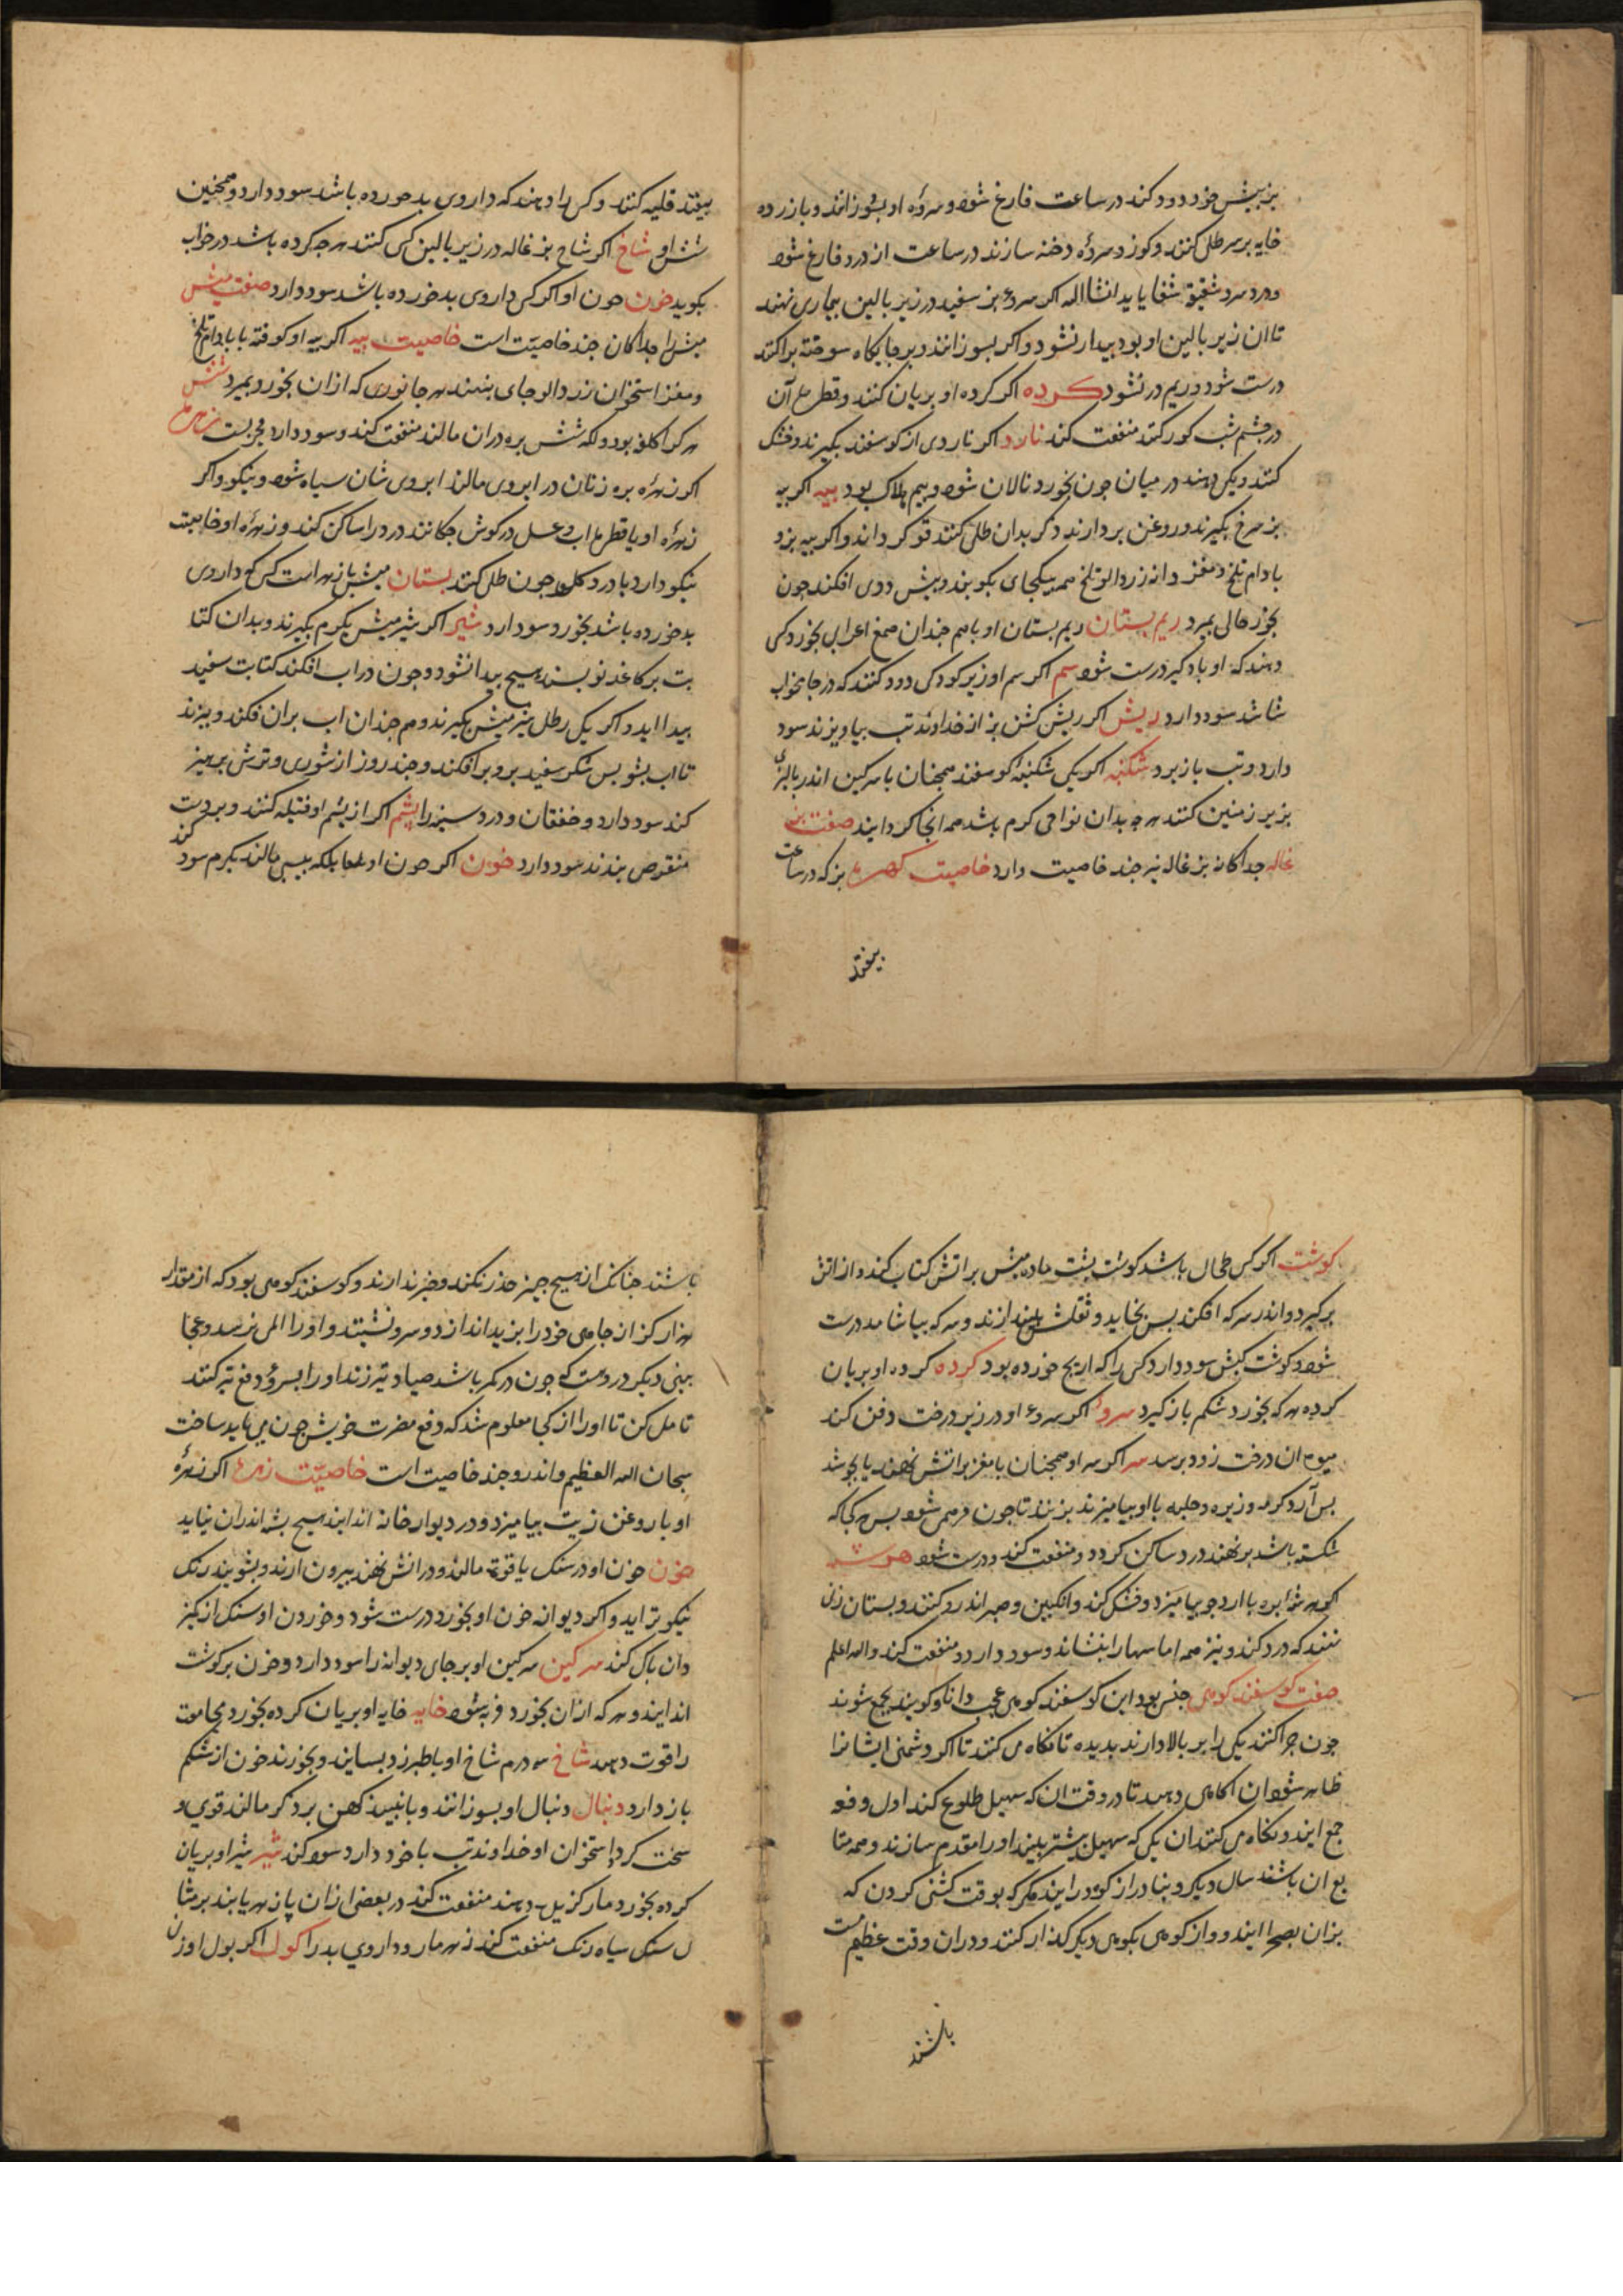 بز بیش خود دود کند در ساعت فارغ شود و سروء او بسوزانند و بازرده
خایه بر سر طلی کنند و کوز دسروء دخنه سازند در ساعت از درد فارغ شود
ودرد سرد شقیقه شفا یابد انشاالله اکر سروء بز سفید در زیر بالین بیماری نهند
تا ان زیر بالین او بود بیدار نشود و اکر بسوزانند و بر جایکاه سوخته براکنند
درست شود و ریم در نشود کرده اکر کرده او بریان کنند و قطره آن
در چشم شب کور کنند منفعت کند نارد اکر ناردی از کوسفند بکیرند و خشک
کنند و بکی دهند در میان جون بخورد نالان شود و بیم هلاک بود بیه اکر بیه
بز سرخ بکیرند و روغن بردارند و ذکر بدان طلی کنند قوی کرداند و اکر بیه بز و
بادام تلخ و مغز دانه زردالو تلخ همه بیکجای بکوبند و بیش ددی افکند جون
بخورد حالی بمیرد ریم بستان ریم بستان او با هم جندان صمغ اعرابی بخورد کسی
دهند که او باد کیر درست شود سم اکر سم او زیر کودکی دود کنند که در جامه خواب
شاشد سود دارد ریش اکر ریش کشن بز از خداوند تب بیاویزند سود
دارد و تب باز برد شکنبه اکر یکی شکنبه کوسفند همجنان با سرکین اندر بالیزی
بزیر زمین کنند هر چه بدان نواحی کرم باشد همه انجا کرد ایند صفت بز
غاله جداکانه بز غاله نیز جند خاصیت دارد خاصیت زهره بز که در ساعت
بیفتد
بیفتد قلیه کنند و کسی را دهند که داروی بد خورده باشد سود دارد و همجنین
شش او شاخ اکر شاخ بز غاله در زیر بالین کسی کنند هر چه کرده باشد در خواب
بکوید خون خون او اکر کسی داروی بد خورده باشد سود دارد صفت میش
میش را جداکان جند خاصیت است خاصیت بیه اکر بیه او کوفته با بادام تلخ
و مغز استخوان زردالو جای بنهند هر جانوری که از ان بخورد بمیرد شش
هر کرا کلف بود و لکه شش بره در ان مالند منفعت کند و سود دارد مجربست زهره
اکر زهره بره زنان در ابروی مالند ابروی شان سیاه شود و نیکو و اکر
زهره او با قطره اب و عسل در کوش جکانند درد را ساکن کند و زهره او خاصیت
نیکو دارد با درد کلو جون طلی کنند بستان میش باز هر است کسی که داروی
بد خورده باشد بخورد سود دارد شیر اکر شیر میش بکرم بکیرند و بدان کتا
بت بر کاغذ نویسند هیچ بیدا نشود و جون در اب افکند کتابت سفید
بیدا اید و اکر یکی رطل شیر میش بکیرند و هم جندان اب بران فکند و بپزند
تا اب بشود بس شکر سفید برو برافکند و جند روز از شوری و ترش برهیز
کند سود دارد و خفقان و درد سینه را پشم اکر از پشم او فتیله کنند و بر دست
منقرص بندند سود دارد خون اکر خون او بلعا بلکه بیسی مالند بکرم سود
کند
کوشت اکر کسی طحال باشد کوشت بشت ماده میش بر اتش کباب کند و از اتش
برکیرد و اندر سرکه افکند بس بخاید و ثقلش بیندازند و سرکه بیاشامد درست
شود و کوشت کبش سود دارد کسی را که اریج خورده بود کرده کرده او بریان
کرده هر که بخورد شکم باز کیرد سروء اکر سروء او در زیر درخت دفن کند
میوه ان درخت زود برسد سر اکر سر او همجنان با مغز بر اتش نهند یا بجوشد
بس آرد کرسنه و زیره و حلبه با او بیامیزند بزند تا جون مرهمی شود بس هر کجا که
شکسته باشد بر نهند درد ساکن کردد و منفعت کند و درست شود
اکر هرشه ابره با ارد جو بیامیزد و خشک کند و انکبین و صبر اندرو کنند و بستان زنی
نهند که درد کند و نیز همه اماسها را بنشاند و سود دارد و منفعت کند والله اعلم
صفت کوسفند کوهی جنس بود این کوسفند کوهی عجب دانا و کویند بجمع شوند
جون جرا کنند یکی را بر بالا دارند بدیده تا نکاه می کنند تا اکر دشمنی ایشانرا
ظاهر شود ان اکاهی دهد تا در وقت ان که سهیل طلوع کند اول دفعه
جمع ایند و نکاه می کنند ان یکی که سهیل بیشتر بیند او را مقدم سازند و همه متا
بع ان باشند سال دیکر و بنا در از کوه در ایند مکر که بوقت کشنی کردن که
بزان بصحرا ایند و واز کوهی بکوهی دیکر کذار کنند و دران وقت عظیم مست
باشند
باشند جنانک از هیچ جیز حذر نکند و خبر ندارند و کوسفند کوهی بود که از مقدار
هزار کز از جاهی خود را بزیر اندازد و سرونشینتد و او را المی نرسد و عجا
یبی دیکر درویست که جون در کمر باشد صیاد تیر زند او را بسروء دفع تیر کنند
تامل کن تا او را از کجا معلوم شد که دفع مضرت خویش جون می باید ساخت
سبحان الله العظیم و اندرو جند خاصیت است خاصیت زهره اکر زهره
او با روغن زیت بیامیزد و در دیوار خانه اندایند هیچ بشه اندران نیاید
خون خون او در سنک یاقوت مالند و در اتش نهند بیرون ارند و بشویند رنک
نیکوتر اید و اکر دیوانه خون او بخورد درست شود و خوردن او سنک از کمیز
دان باک کند سرکین سرکین او بر جای دیوانه را سود دارد و خون بر کوشت
اندایند و هر که از ان بخورد فربه شود خایه خایه او بریان کرده بخورد مجامعت
را قوت دهد شاخ سه درم شاخ او با طبرزد بسایند و بخورند خون از شکم
باز دارد دنبال دنبال او بسوزانند و با نبیذ کهن بر ذکر مالند قوی و
سخت کردد استخوان او خداوند تب با خود دارد سود کند شیر شیر او بریان
کرده بخورد مار کزیده دهند منفعت کند در بعضی از ان پازهر یابند بر مثا
ل سنک سیاه رنک منفعت کند زهر مار و داروی بد را کول اکر بول او زن